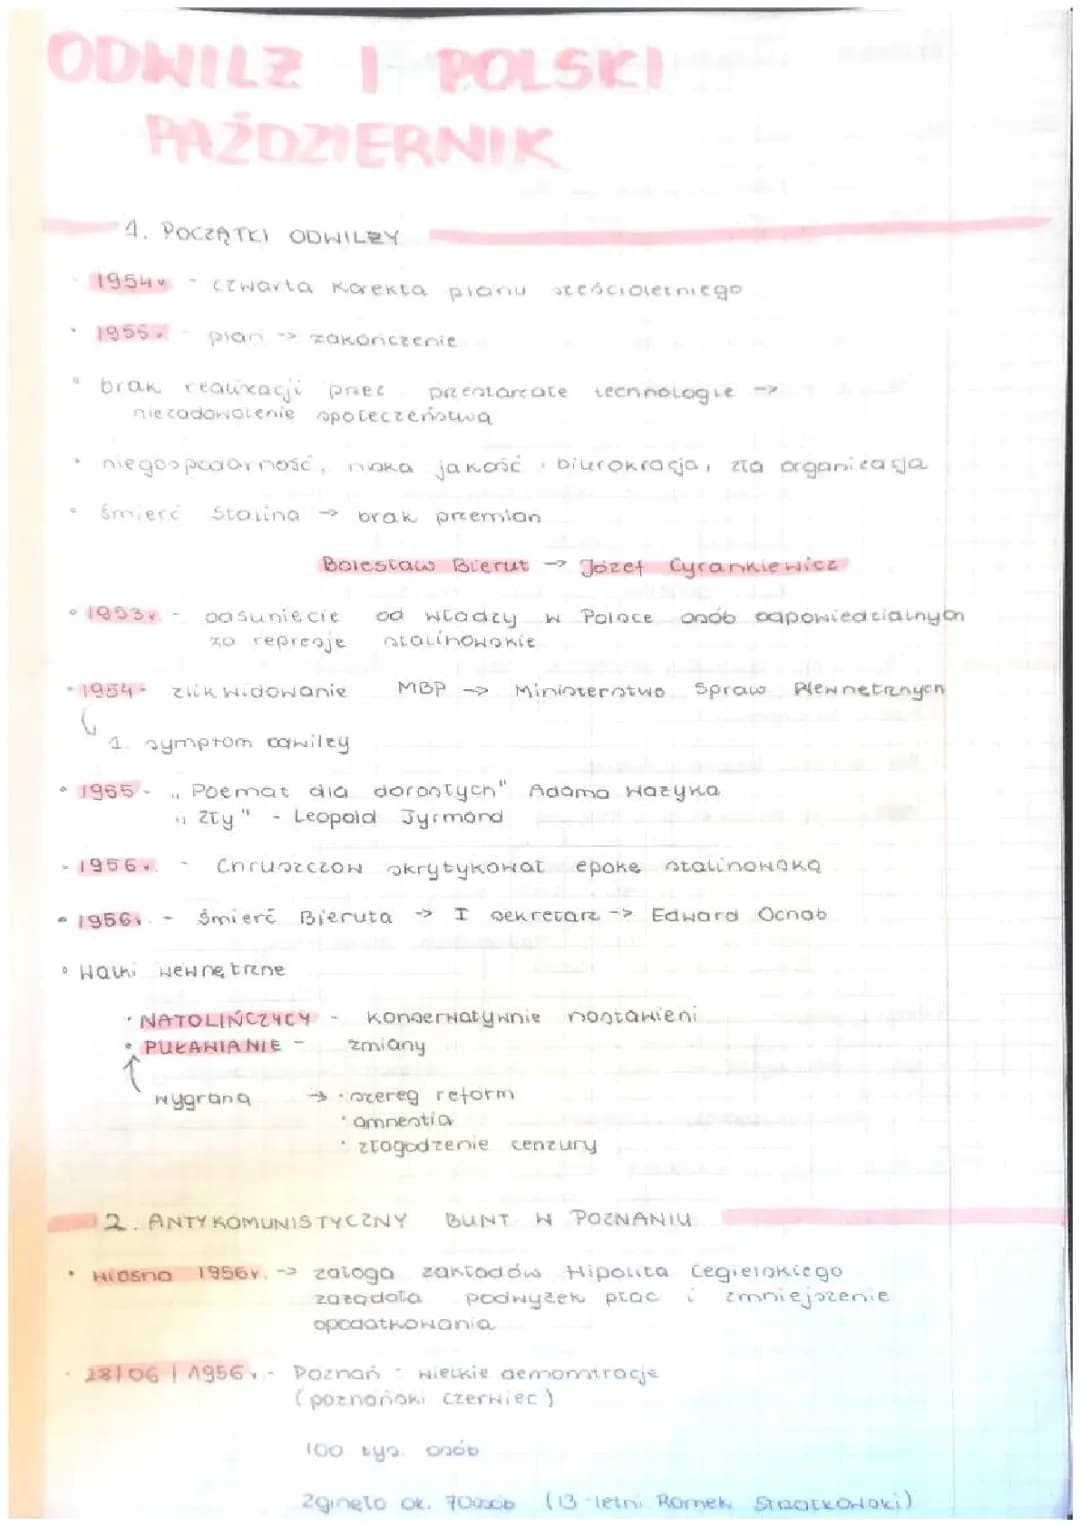 ODWILŻ I POLSKI
PAŹDZIERNIK
1. POCZĄTKI ODWILŻY
· 1954r - czwarta korekta planu sześcioletniego
· 1955r - plan -> zakończenie
· brak realizacji przez przestarzałe technologie ->
niezadowolenie społeczeństwa
· niegospodarność, niska jakość, biurokracja, zła organizacja
· śmierć Stalina -> brak przemian
Bolesław Bierut -> Józef Cyrankiewicz
· 1953r. - odsunięcie od władzy w Polsce osób odpowiedzialnych
za represje stalinowskie
· 1954 - zlikwidowanie MBP -> Ministerstwo Spraw Wewnętrznych
1. symptom odwilży
· 1955 - „Poemat dla dorosłych" Adama Ważyka
„Zły" - Leopold Tyrmand
- 1956r. - Chruszczow skrytykował epokę stalinowską
· 1956r. - śmierć Bieruta -> I sekretarz -> Edward Ochab
· Walki wewnętrzne
· NATOLIŃCZYCY - konserwatywnie nastawieni
· PUŁAWIANIE - zmiany
wygrana -> · szereg reform
· amnestia
· złagodzenie cenzury
2. ANTYKOMUNISTYCZNY BUNT W POZNANIU
· wiosna 1956r. -> załoga zakładów Hipolita Cegielskiego
zażądała podwyżek płac i zmniejszenie
opodatkowania
· 28/06/1956r. - Poznań - wielkie demonstracje
(poznański czerwiec)
100 tys. osób
Zginęło ok. 70 osób (13-letni Romek Strzałkowski)